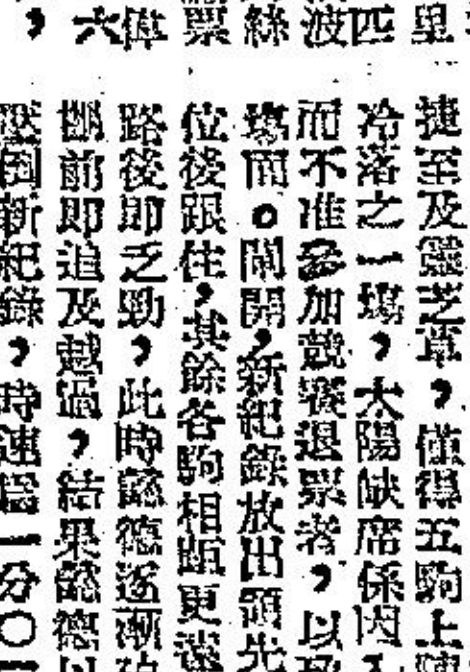 里
捷至及靈芝草，僅得五駒上陣
匹
冷落之一塲，太陽缺席係因
波
而不准參加競賽退票者，以致
綵
塲面。閘開，新紀錄放出領先
票
位後跟住，其餘各駒相距更遠
偉
路後即乏勁，此時懿德逐漸
六
挪前即追及越過，結果懿德以
，
壓倒新紀錄，時速爲一分〇